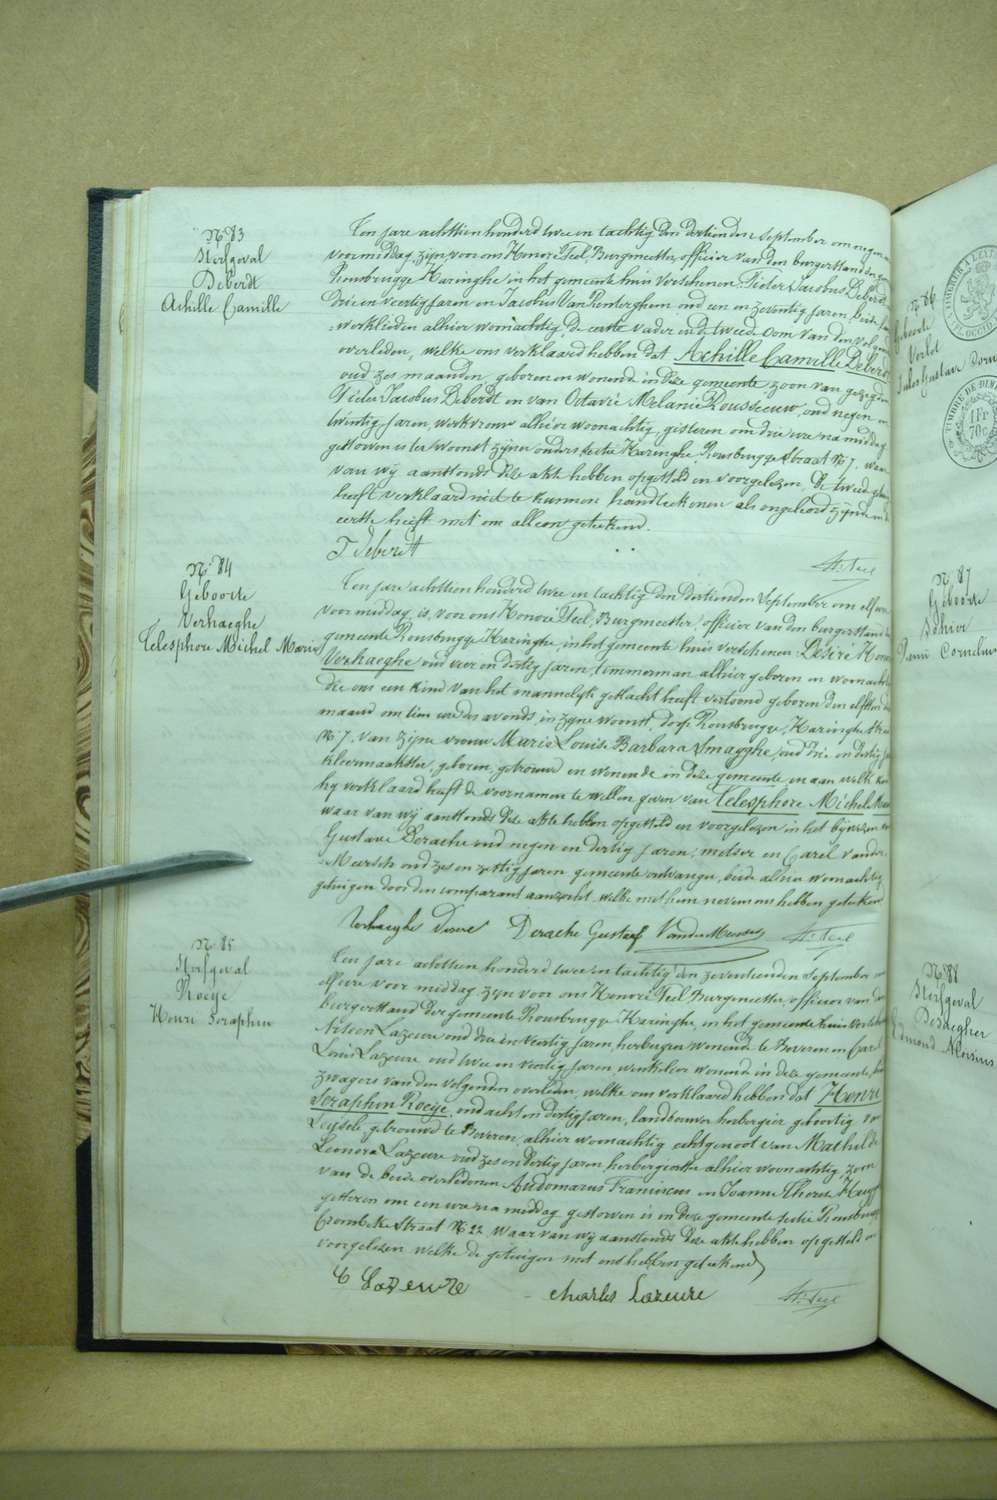 N° 83
Sterfgeval
Deberdt
Achille Camille
Ten jare achttien honderd twee en tachtig den dertienden September om negen
voormiddag, zijn voor ons Honoré Teel, Burgmeester, officier van den burgerstand der gem
Rousbrugge Haringhe in het gemeente huis verschenen: Pieter Jacobus Deberdt
drie en veertig jaren en Jacobus Van Renterghem oud een en zeventig jaren, beide
werklieden alhier woonachtig, de eerste vader en de tweede oom van den volgend
overleden, welke ons verklaard hebben dat Achille Camille Deberdt
oud zes maanden, geboren en wonend in deze gemeente zoon van gezegden
Pieter Jacobus Deberdt en van Octavie Melanie Rousseeuw, oud negen en
twintig jaren, werkvrouw alhier woonachtig, gisteren om drie ure na middag
gestorven is ter woonst zijner ouders sectie Haringhe Rousbrugge straat N° 7, waar
van wij aanstonds deze akte hebben opgesteld en voorgelezen. De tweede getu
heeft verklaard niet te kunnen handteekenen als ongeleerd zijnde en de
eerste heeft met ons alleen geteekend.
P Deberdt
H. Teel
N° 84
Geboorte
Verhaeghe
Telesphore Michel Marie
Ten jare achttien honderd twee en tachtig den dertienden September om elf ure
voor middag, is voor ons Honoré Teel, Burgmeester, officier van den burgerstand der
gemeente Rousbrugge Haringhe, in het gemeente huis verschenen: Désiré Honoré
Verhaeghe oud vier en dertig jaren, timmerman alhier geboren en woonachtig
die ons een kind van het mannelijk geslacht heeft vertoond geboren den elfsten dezer
maand om tien ure des avonds in zijne woonst, dorp Rousbrugge, Haringhe straat
N° 7, van zijne vrouw Marie Louise Barbara Smagghe, oud drie en dertig jaren
kleermaakster, geboren, getrouwd en wonende in deze gemeente en aan welk kind
hij verklaard heeft de voornamen te willen geven van Telesphore Michel Marie
waar van wij aanstonds deze akte hebben opgesteld en voorgelezen in het bijwezen van
Gustave Derache oud negen en dertig jaren, metser en Carel Vander
Meersch oud zes en zestig jaren gemeente ontvanger, beide alhier woonachtig
getuigen door den comparant aanzocht, welke met hem nevens ons hebben geteekend
Verhaeghe Désiré Derache Gustaf VanderMeersch H. Teel
N° 85
Sterfgeval
Roeije
Henri Seraphin
Ten jare achttien honderd twee en tachtig den zeventienden September om
elf ure voor middag, zijn voor ons Honoré Teel Burgmeester, officier van den
burgerstand der gemeente Rousbrugge Haringhe, in het gemeente huis verschenen
Lazeure oud drie en veertig jaren, herbergier wonende te Beveren en Carel
Louis Lazeure oud twee en veertig jaren, winkelier wonend in deze gemeente, beide
zwagers van den volgenden overleden, welke ons verklaard hebben dat Henri
Seraphin Roeije, oud acht en dertig jaren, landbouwer herbergier geboortig van
Leysele, getrouwd te Beveren, alhier woonachtig echtgenoot van Mathilde
Leonora Lazeure oud zes en dertig jaren, herbergierster alhier woonachtig, zoon
van de beide overledenen Audomarus Franciscus en Joanna Theresa
gisteren om een ure na middag gestorven is in deze gemeente sectie Rousbrugge
Crombeke straat N° 22. waar van wij aanstonds deze akte hebben opgesteld en
voorgelezen welke de getuigen met ons hebben geteekend
Lazeure Charles Lazeure H. Teel
N° 86
Geboorte
Verlet
Jules Gustave
TIMBRE DE DIM
1 Fr
70c
N° 87
Geboorte
Sohier
Cornelius
N° 88
Sterfgeval
Dedaegher
Edmond Aloisius